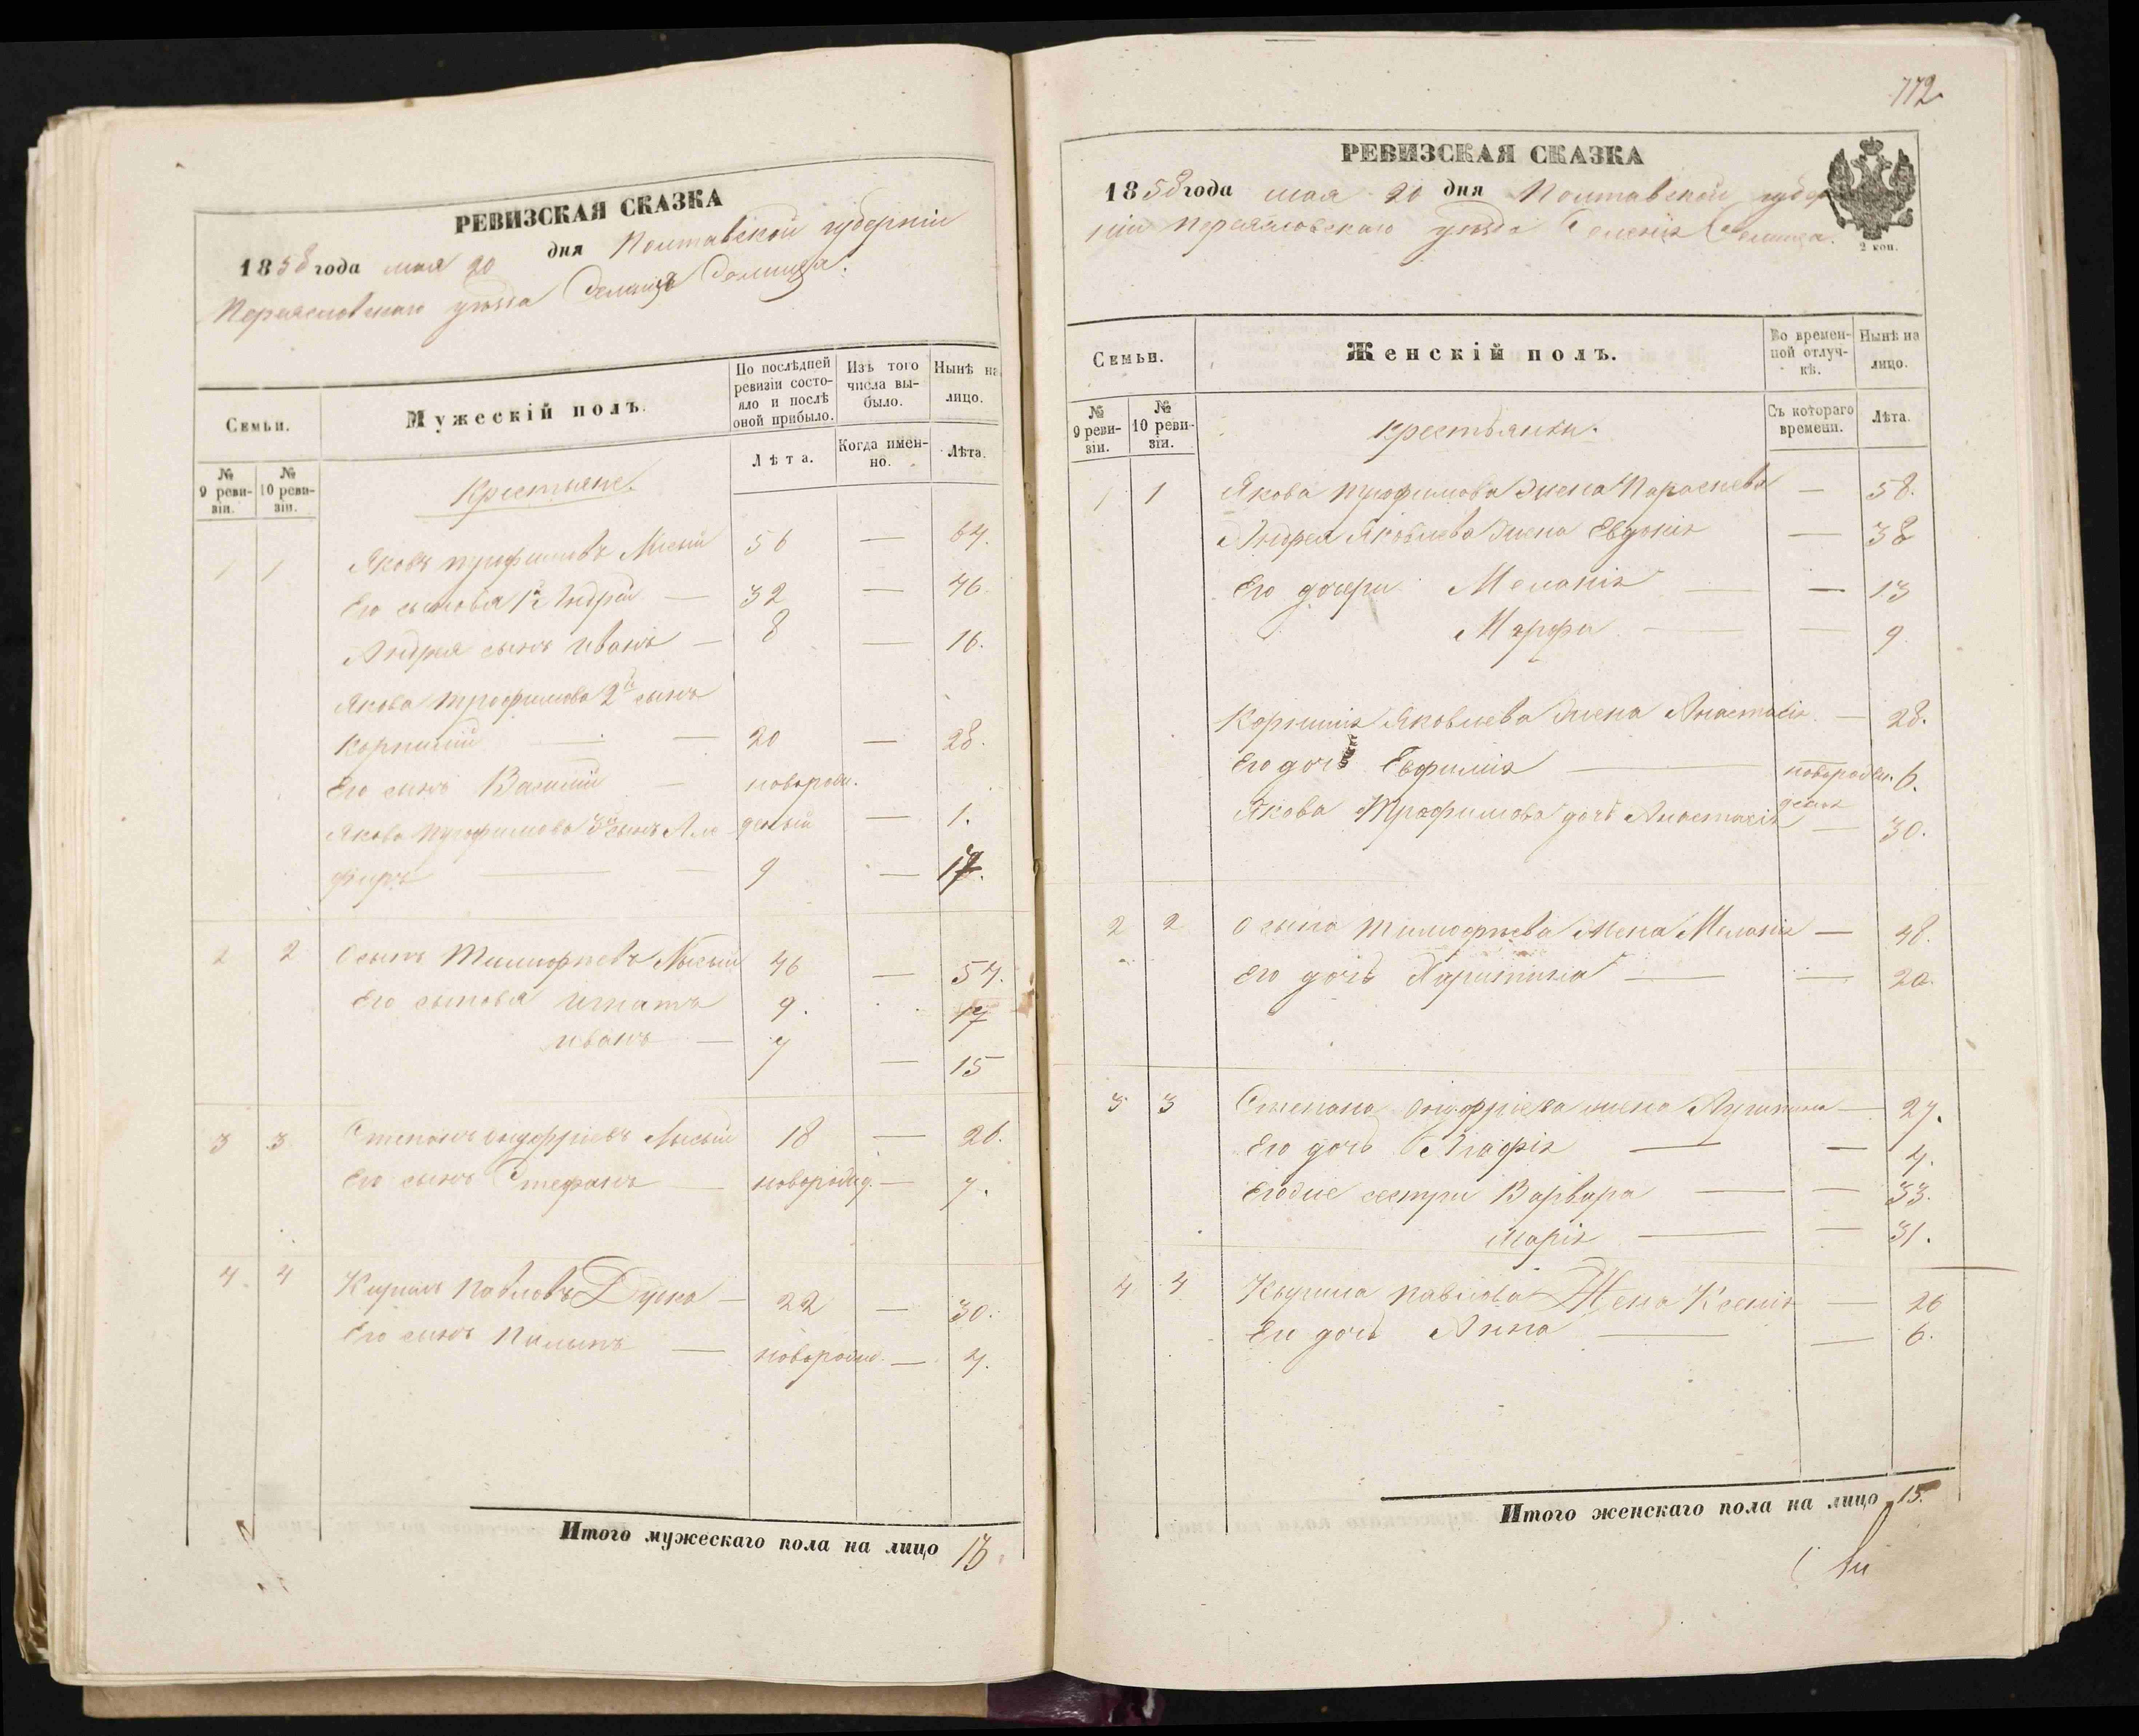 РЕВИЗСКАЯ СКАЗКА
1858 года мая 20 дня Полтавской губерніи
Переяславскаго уѣзда
Семьи.
Мужескій полъ.
По послѣдней ревизіи состояло и послѣ оной прибыло.
Изъ того числа выбыло.
Нынѣ на лицо.
№ 9 ревизіи.
№ 10 ревизіи.
Лѣта.
Когда именно.
Лѣта.
Крестьяне.
1 1 Яковъ Трофимовъ 56 — 64.
Его сыновья 1й Андрей — 32 — 46.
Андрея сынъ Иванъ — 8 — 16.
Якова Трофимова 2й сынъ
Корнилій — — 20 — 28.
Его сынъ Василій — новорож.
Якова Трофимова 3й сынъ Але деный — 1.
— — 9 — 17.
2 2 Осипъ Тимофѣевъ Лысый 46 — 54.
Его сыновья Игнатъ 9. 17
Иванъ — 7 — 15
3 3 Степанъ Онуфріевъ Лысый 18 — 26.
Его сынъ Стефанъ — новорожд. — 7.
4 4 Кирилъ Павловъ — 22 — 30.
Его сынъ — новорожд. — 4.
Итого мужескаго пола на лицо 13.
772.
РЕВИЗСКАЯ СКАЗКА
1858 года мая 20 дня Полтавской губер
ніи Переяславскаго уѣзда
2 коп.
Семьи.
Женскій полъ.
Во временной отлучкѣ.
Нынѣ на лицо.
№ 9 ревизіи.
№ 10 ревизіи.
Съ котораго времени.
Лѣта.
Крестьянки.
1 1 Якова Трофимова жена Параскева — 58.
Андрея Яковлева жена Евдокія — 38
Его дочери Меланія — — 13
Марфа — — 9.
Корнилія Яковлева жена Анастасія — 28.
Его дочь Евфимія — новорожден. 6.
Якова Трофимова дочь Анастасія — 30.
2 2 Осипа Тимофѣева жена Меланія — 48.
Его дочь — — 20.
3 3 Степана Онуфріева жена — 27.
Его дочь Агафія — — 4.
Его же сестры Варвара — — 33.
Марія — — 31.
4 4 Кирила Павлова Жена Ксенія — 26
Его дочь Анна — — 6.
Итого женскаго пола на лицо 15.